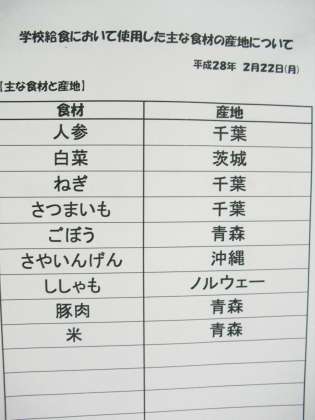 学校給食において使用した主な食材の産地について
平成28年 2月22日(月)
【主な食材と産地】
食材 産地
人参 千葉
白菜 茨城
ねぎ 千葉
さつまいも 千葉
ごぼう 青森
さやいんげん 沖縄
ししゃも ノルウェー
豚肉 青森
米 青森